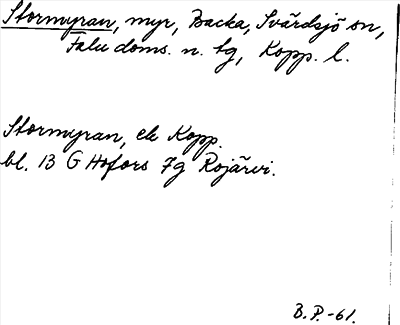 Stormyran, myr, Backa, Svärdsjö sn,
Falu doms. n. tg, Kopp. l.
Stormyran, ek Kopp.
bl. 13 G Hofors 7g Rojärvi.
B.P.-61.